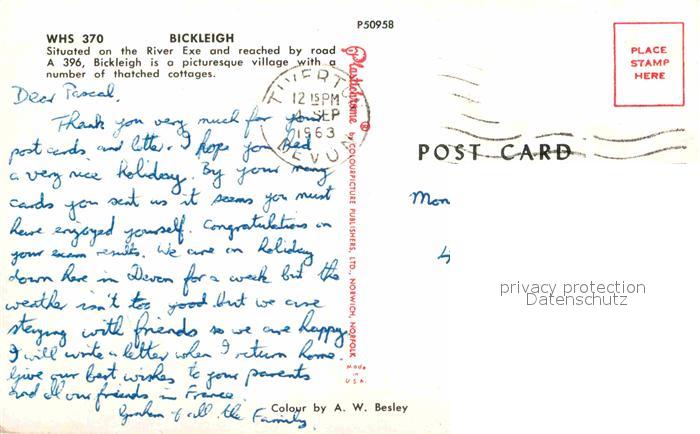 P50958
WHS 370 BICKLEIGH
Situated on the River Exe and reached by road
A 396, Bickleigh is a picturesque village with a
number of thatched cottages.
Dear Pascal,
Thank you very much for your
post cards and letter. I hope you had
a very nice holiday. By your many
cards you sent us it seems you must
have enjoyed yourself. Congratulations on
your exam results. We are on holiday
down here in Devon for a week but the
weather isn't too good but we are
staying with friends so we are happy.
I will write a letter when I return home.
Give our best wishes to your parents
and all our friends in France.
Graham & all the Family.
TIVERTON
12 15 PM
4 SEP
1963
DEVON
Plastichrome ® by COLOURPICTURE PUBLISHERS, LTD. NORWICH, NORFOLK
Made in U.S.A.
Colour by A. W. Besley
PLACE
STAMP
HERE
POST CARD
Mon
4
privacy protection
Datenschutz